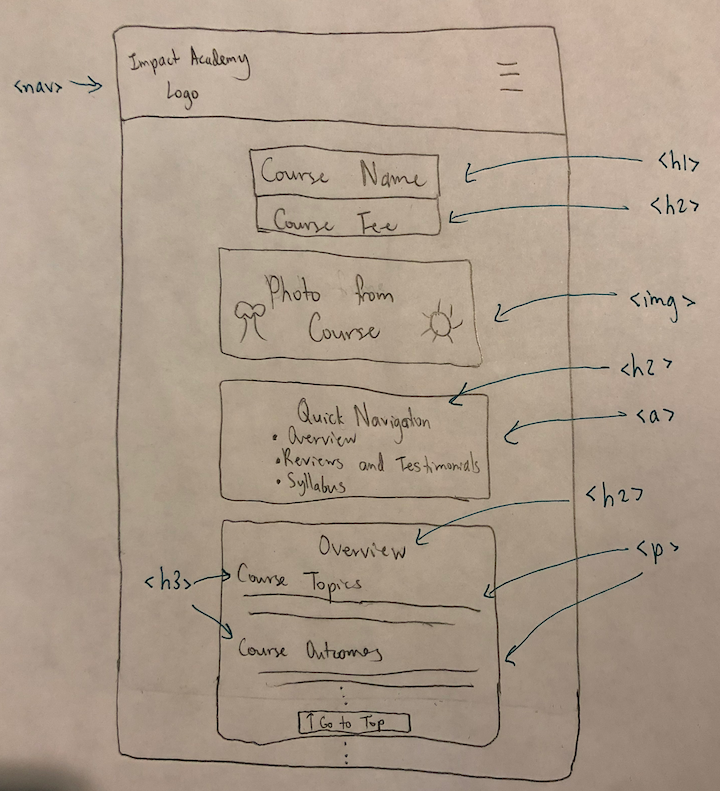 Impact Academy
Logo
<nav>
Course Name
<h1>
Course Fee
<h2>
Photo from
Course
<img>
<h2>
Quick Navigation
<a>
• Overview
• Reviews and Testimonials
• Syllabus
<h2>
Overview
<p>
<h3>
Course Topics
Course Outcomes
↑ Go to Top